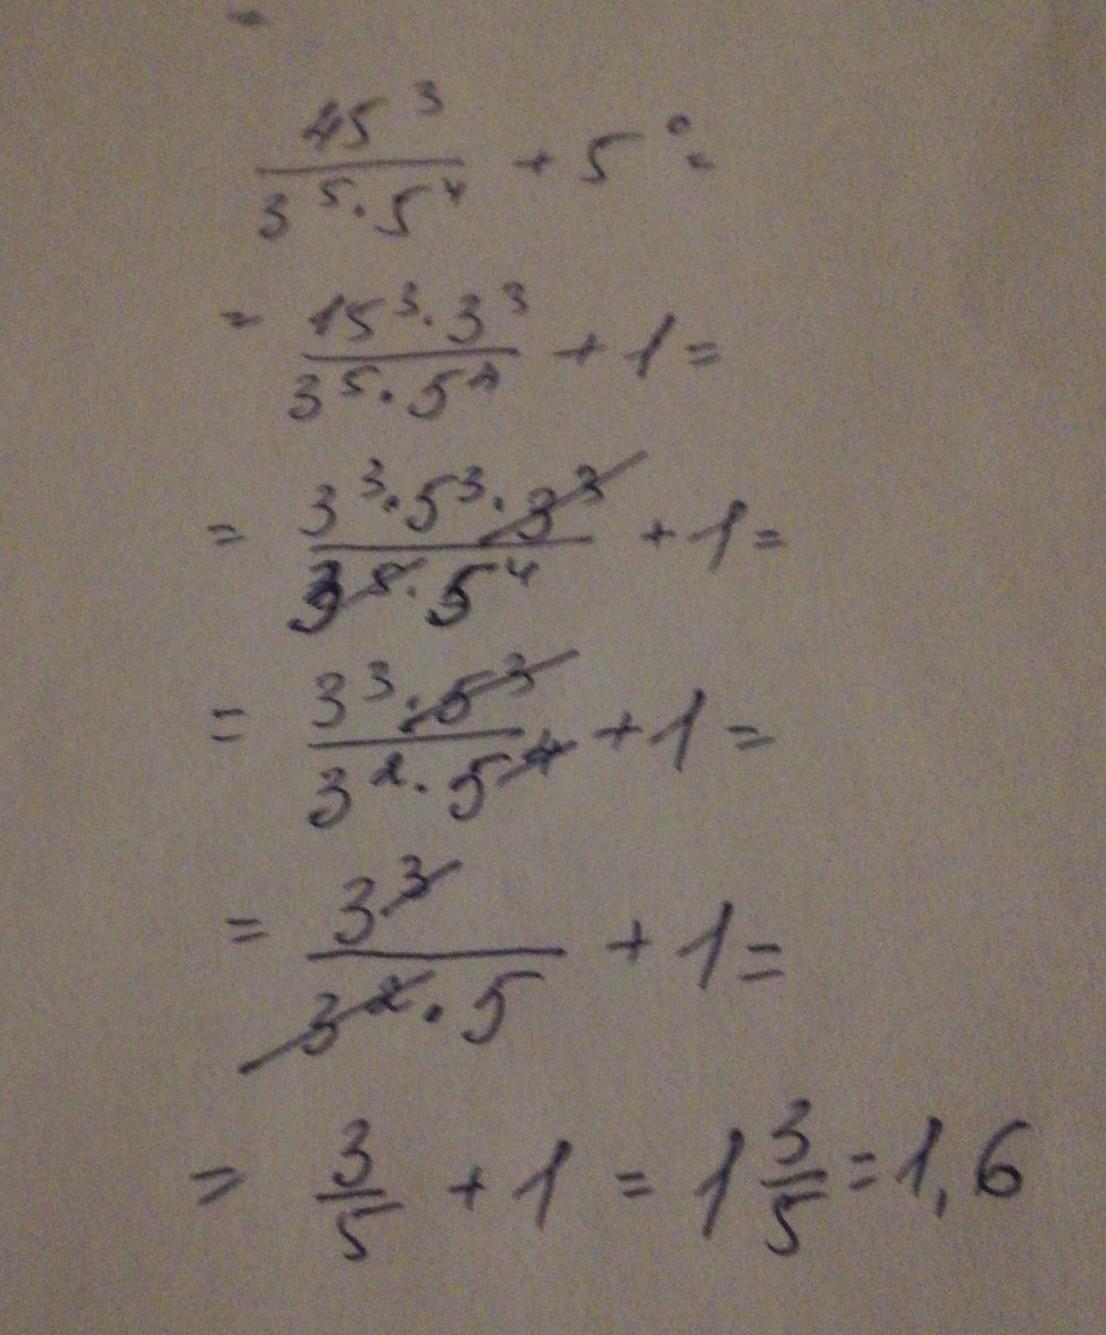 45³ / (3⁵ · 5⁴) + 5⁰ =
= 15³ · 3³ / (3⁵ · 5⁴) + 1 =
= 3³ · 5³ · 3³ / (3⁵ · 5⁴) + 1 =
= 3³ · 5³ / (3² · 5⁴) + 1 =
= 3³ / (3² · 5) + 1 =
= 3/5 + 1 = 1 3/5 = 1,6